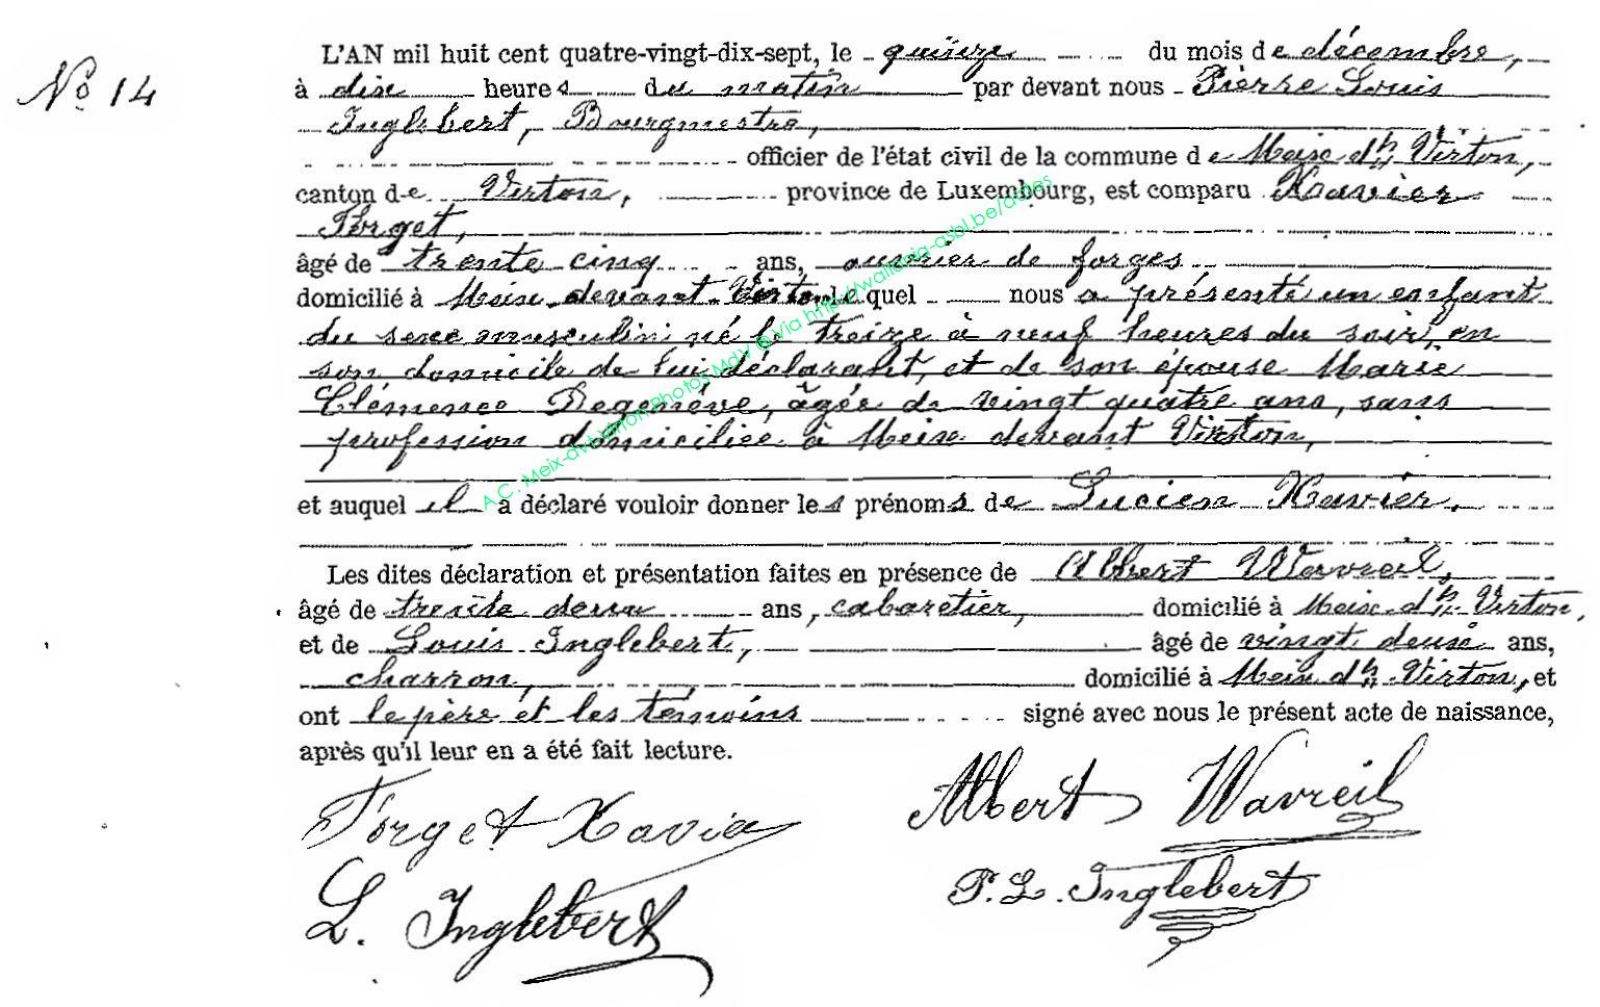 No 14
L'AN mil huit cent quatre-vingt-dix-sept, le quinze du mois de décembre,
à dix heures du matin par devant nous Pierre Louis
Inglebert, Bourgmestre,
officier de l'état civil de la commune de Meix dt Virton,
canton de Virton, province de Luxembourg, est comparu Xavier
Forget,
âgé de trente cinq ans, ouvrier de forges
domicilié à Meix devant Virton lequel nous a présenté un enfant
du sexe masculin né le treize à neuf heures du soir, en
son domicile de lui déclarant, et de son épouse Marie
Clémence Degenève, âgée de vingt quatre ans, sans
profession domiciliée à Meix devant Virton,
et auquel il a déclaré vouloir donner les prénoms de Lucien Xavier.
Les dites déclaration et présentation faites en présence de Albert Wavreil,
âgé de trente deux ans, cabaretier, domicilié à Meix dt Virton,
et de Louis Inglebert, âgé de vingt deux ans,
charron, domicilié à Meix dt Virton, et
ont le père et les témoins signé avec nous le présent acte de naissance,
après qu'il leur en a été fait lecture.
Forget Xavier Albert Wavreil
L. Inglebert P. L. Inglebert